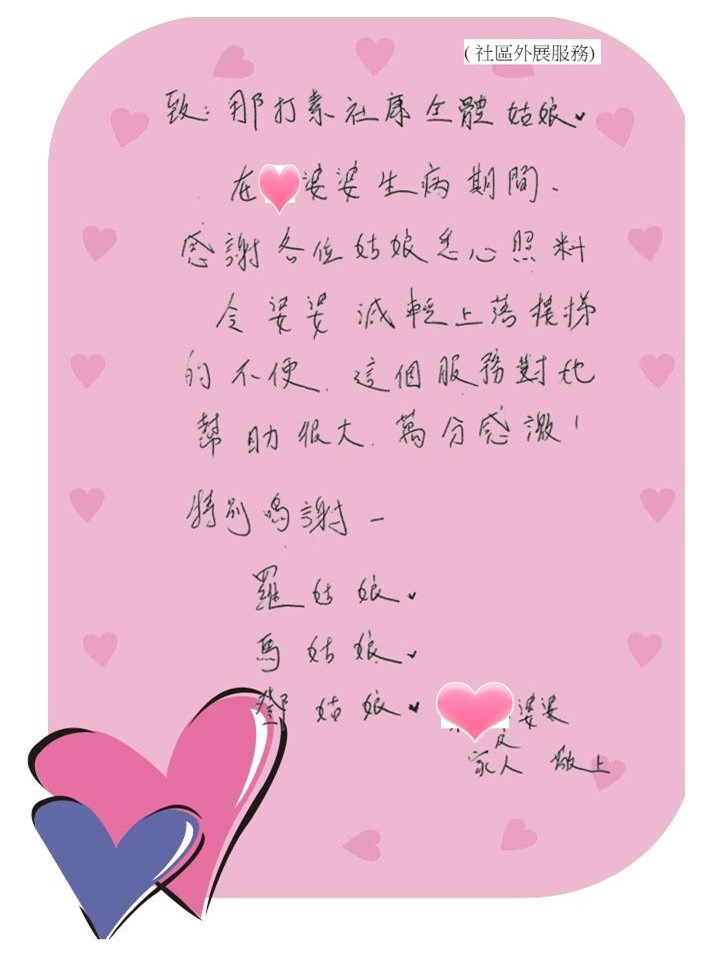 (社區外展服務)
致：那打素社康全體姑娘
在婆婆生病期間、
感謝各位姑娘悉心照料
令婆婆減輕上落樓梯
的不便、這個服務對她
幫助很大、萬分感激！
特別鳴謝－
羅姑娘
馬姑娘
鄧姑娘
婆婆
及
家人 敬上